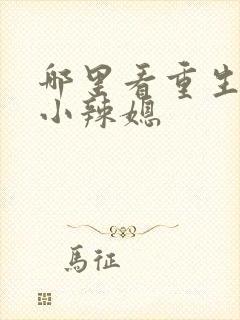 哪里看重生
小辣媳
馬征